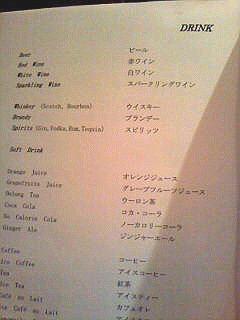 DRINK
Beer ビール
Red Wine 赤ワイン
White Wine 白ワイン
Sparkling Wine スパークリングワイン
Whiskey (Scotch, Bourbon) ウイスキー
Brandy ブランデー
Spirits (Gin, Vodka, Rum, Tequin) スピリッツ
Soft Drink
Orange Juice オレンジジュース
Grapefruits Juice グレープフルーツジュース
Oolong Tea ウーロン茶
Coca Cola コカ・コーラ
No Calorie Cola ノーカロリーコーラ
Ginger Ale ジンジャーエール
Coffee コーヒー
Ice Coffee アイスコーヒー
Tea 紅茶
Ice Tea アイスティー
Café au Lait カフェオレ
au Lait